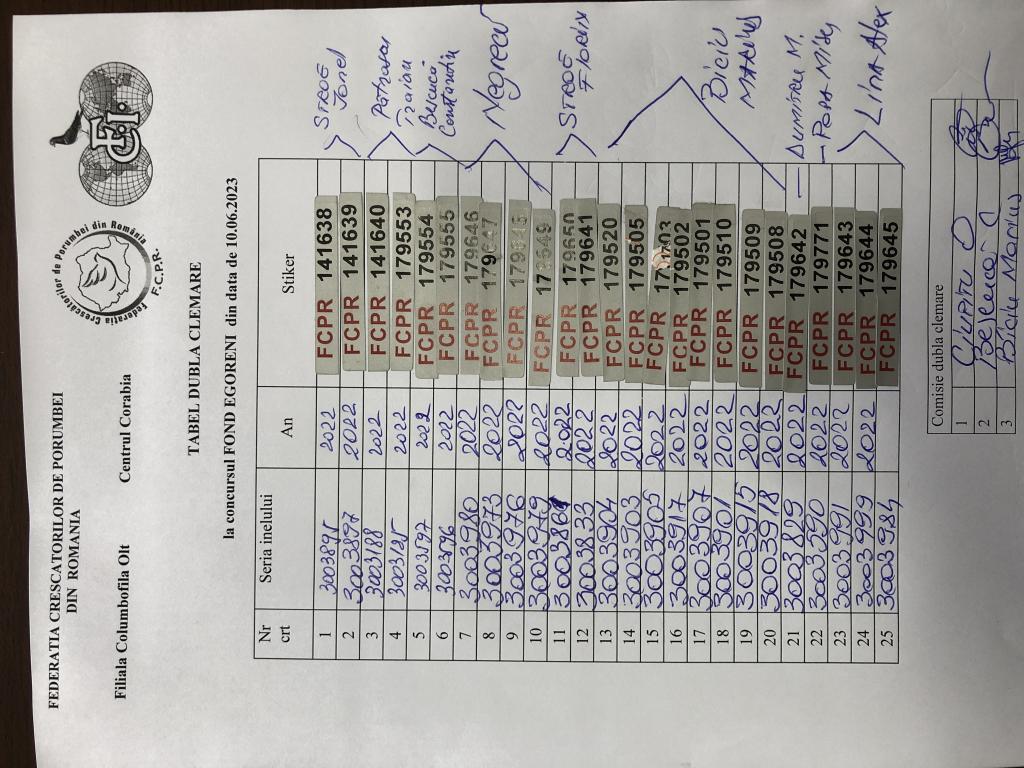 FEDERATIA CRESCATORILOR DE PORUMBEI
DIN ROMANIA
Filiala Columbofila Olt Centrul Corabia
FCI
Federatia Crescatorilor de Porumbei din România
F.C.P.R.
TABEL DUBLA CLEMARE
la concursul FOND EGORENI din data de 10.06.2023
Nr crt Seria inelului An Stiker
1 3003895 2022 FCPR 141638 STROE Ionel
2 3003897 2022 FCPR 141639
3 3003188 2022 FCPR 141640
4 3003185 2022 FCPR 179553 Traian
5 3003597 2022 FCPR 179554
6 3003596 2022 FCPR 179555
7 3003980 2022 FCPR 179646 Negrea
8 3003973 2022 FCPR 179647
9 3003976 2022 FCPR
10 3003979 2022 FCPR 179649
11 2022 FCPR 179650 STROE Florin
12 3003833 2022 FCPR 179641
13 3003904 2022 FCPR 179520
14 3003903 2022 FCPR 179505
15 3003905 2022 FCPR
16 3003917 2022 FCPR 179502
17 3003907 2022 FCPR 179501 MARIUS
18 3003901 2022 FCPR 179510
19 3003915 2022 FCPR 179509
20 3003918 2022 FCPR 179508
21 3003829 2022 FCPR 179642 Dumitru M.
22 3003590 2022 FCPR 179771 POPA Mișu
23 3003991 2022 FCPR 179643 Lința Alex
24 3003999 2022 FCPR 179644
25 3003984 FCPR 179645
Comisie dubla clemare
1
2
3 Marius